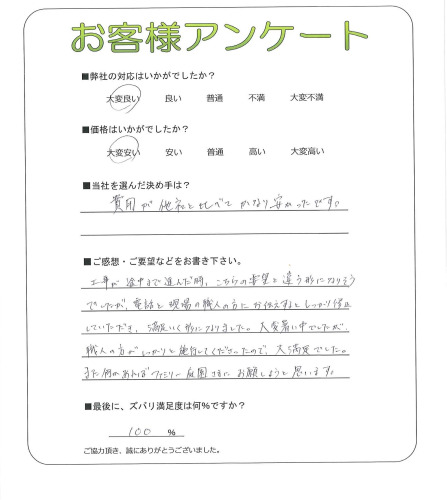 お客様アンケート
■弊社の対応はいかがでしたか？
大変良い 良い 普通 不満 大変不満
■価格はいかがでしたか？
大変安い 安い 普通 高い 大変高い
■当社を選んだ決め手は？
費用が他社と比べてかなり安かったです。
■ご感想・ご要望などをお書き下さい。
工事が途中まで進んだ時、こちらの希望と違う形になりそう
でしたが、電話と現場の職人の方にお伝えするとしっかり修正
していただき、満足いく形になりました。大変暑い中でしたが、
職人の方がしっかりと施行してくださったので、大満足でした。
また何かあればファミリー庭園さまにお願しようと思います。
■最後に、ズバリ満足度は何％ですか？
100 %
ご協力頂き、誠にありがとうございました。